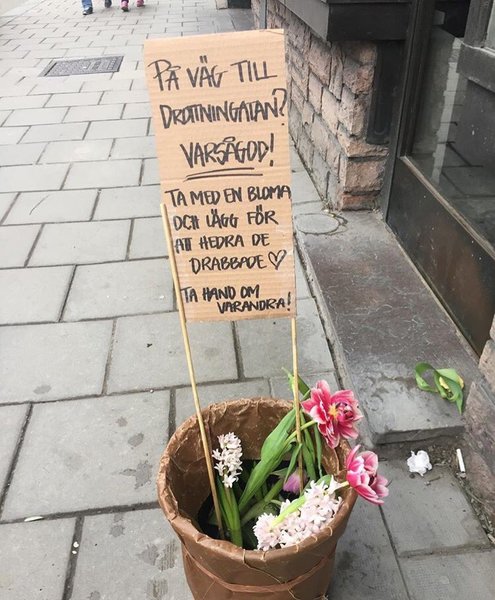 PÅ VÄG TILL
DROTTNINGATAN?
VARSÅGOD!
TA MED EN BLOMA
OCH LÄGG FÖR
ATT HEDRA DE
DRABBADE ♡
TA HAND OM
VARANDRA!